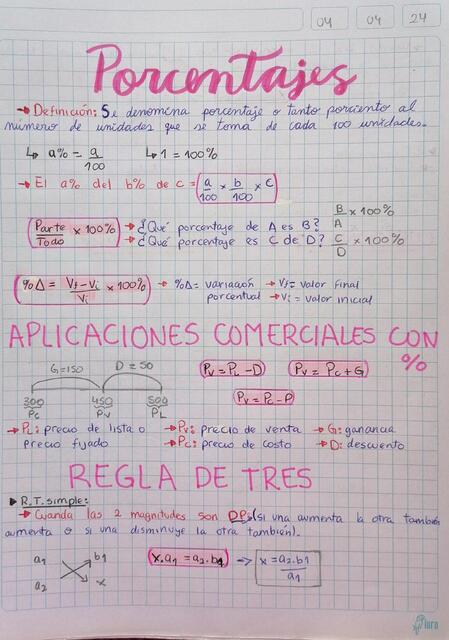 04 04 24
Porcentajes
→ Definición: Se denomina porcentaje o tanto porciento al
número de unidades que se toma de cada 100 unidades.
↳ a% = a/100 ↳ 1 = 100%
→ El a% del b% de c = (a/100 × b/100 × c)
(Parte/Todo × 100%) → ¿Qué porcentaje de A es B? B/A × 100%
→ ¿Qué porcentaje es C de D? C/D × 100%
(%Δ = Vf - Vi/Vi × 100%) → %Δ = variación → Vf = valor final
porcentual → Vi = valor inicial
APLICACIONES COMERCIALES CON
%
G=150 D = 50
300 450 500
Pc Pv PL
(Pv = PL - D) (Pv = Pc + G)
(Pv = Pc - P)
→ PL: precio de lista o → Pv: precio de venta → G: ganancia
precio fijado → Pc: precio de costo → D: descuento
REGLA DE TRES
▶ R.T. simple:
→ Cuando las 2 magnitudes son DP: (si una aumenta la otra también
aumenta o si una disminuye la otra también).
a1 b1
a2 x
(x.a1 = a2.b1) → x = a2.b1/a1